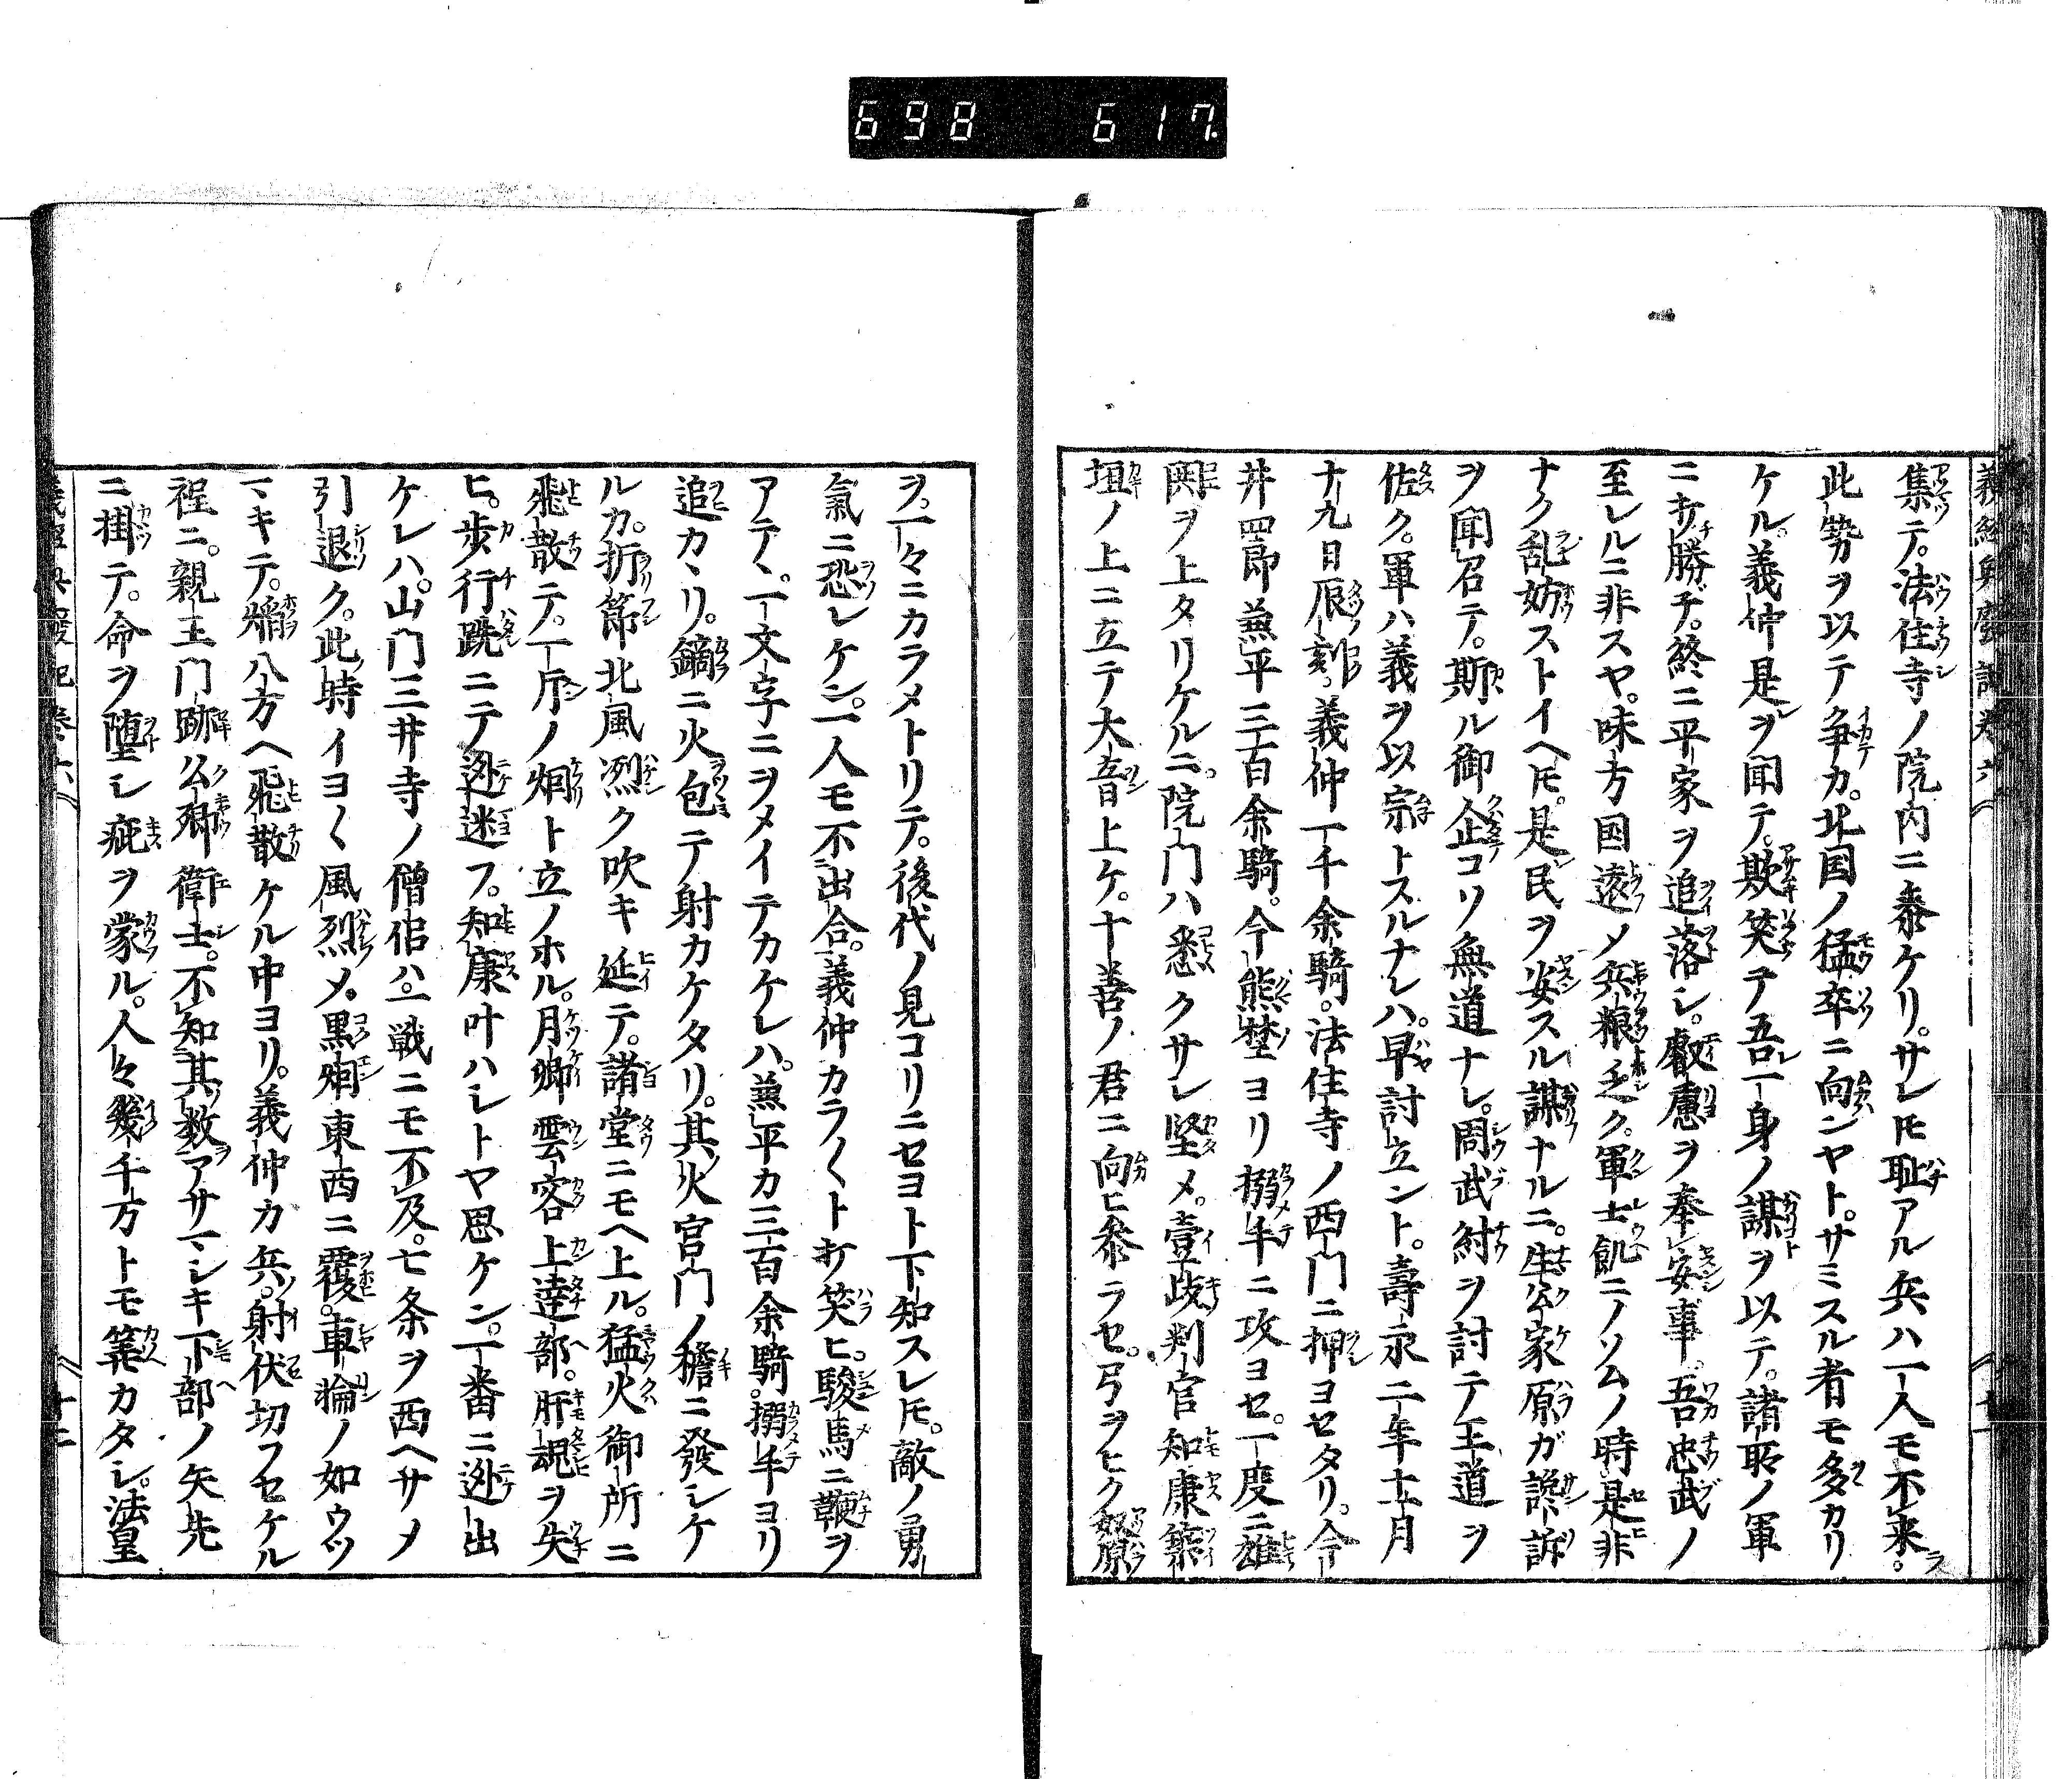 698 617
集テ。法住寺ノ院内ニ参ケリ。サレ𪜈耻アル兵ハ一人モ不来。
此勢ヲ以テ争カ。北国ノ猛卒ニ向ンヤト。サミスル者モ多カリ
ケル。義仲是ヲ聞テ。欺笑テ吾一身ノ謀ヲ以テ。諸所ノ軍
ニ打勝チ。終ニ平家ヲ追落シ。叡慮ヲ奉安事。吾忠武ノ
至レルニ非スヤ。味方国遠ノ兵粮乏ク。軍士飢ニノソムノ時是非
ナク乱妨ストイヘ𪜈。是民ヲ安スル謀ナルニ。生公家原ガ讒訴
ヲ聞召テ。斯ル御企コソ無道ナレ。周武紂ヲ討テ王道ヲ
佐ク。軍ハ義ヲ以宗トスルナレハ。早討立ント。壽永二年十一月
十九日辰刻。義仲一千余騎。法住寺ノ西門ニ押ヨセタリ。今
井四郎兼平三百余騎。今熊埜ヨリ搦手ニ攻ヨセ。一度ニ雄
閧ヲ上タリケルニ。院門ハ悉クサシ堅メ。壹岐判官知康築
垣ノ上ニ立テ大音上ケ。十善ノ君ニ向ヒ参ラセ。弓ヲヒク奴原
ヲ。一々ニカラメトリテ。後代ノ見コリニセヨト下知スレ𪜈。敵ノ勇
氣ニ恐レケン。一人モ不出合。義仲カラ〱ト打笑ヒ。駿馬ニ鞭ヲ
アテヽ。一文字ニヲメイテカケレハ。兼平カ三百余騎。搦手ヨリ
追カヽリ。鏑ニ火包テ射カケタリ。其火宮門ノ檐ニ發シケ
ルカ。折節北風烈ク吹キ延テ。諸堂ニモヘ上ル。猛火御所ニ
飛散テ。一片ノ烟ト立ノホル。月卿雲客上達部。肝魂ヲ失
ヒ。歩行跣ニテ迯迷フ。知康叶ハシトヤ思ケン。一番ニ迯出
ケレハ。山門三井寺ノ僧侶ハ。一戦ニモ不及。七条ヲ西ヘサメ
引退ク。此時イヨ〱風烈メ。黒烟東西ニ覆。車輪ノ如ウツ
マキテ。焔八方ヘ飛散ケル中ヨリ。義仲カ兵。射伏切フセケル
程ニ。親王門跡公卿衛士。不知其数アサマシキ下部ノ矢先
ニ掛テ。命ヲ堕シ疵ヲ蒙ル。人々幾千万トモ筭カタシ。法皇
十二